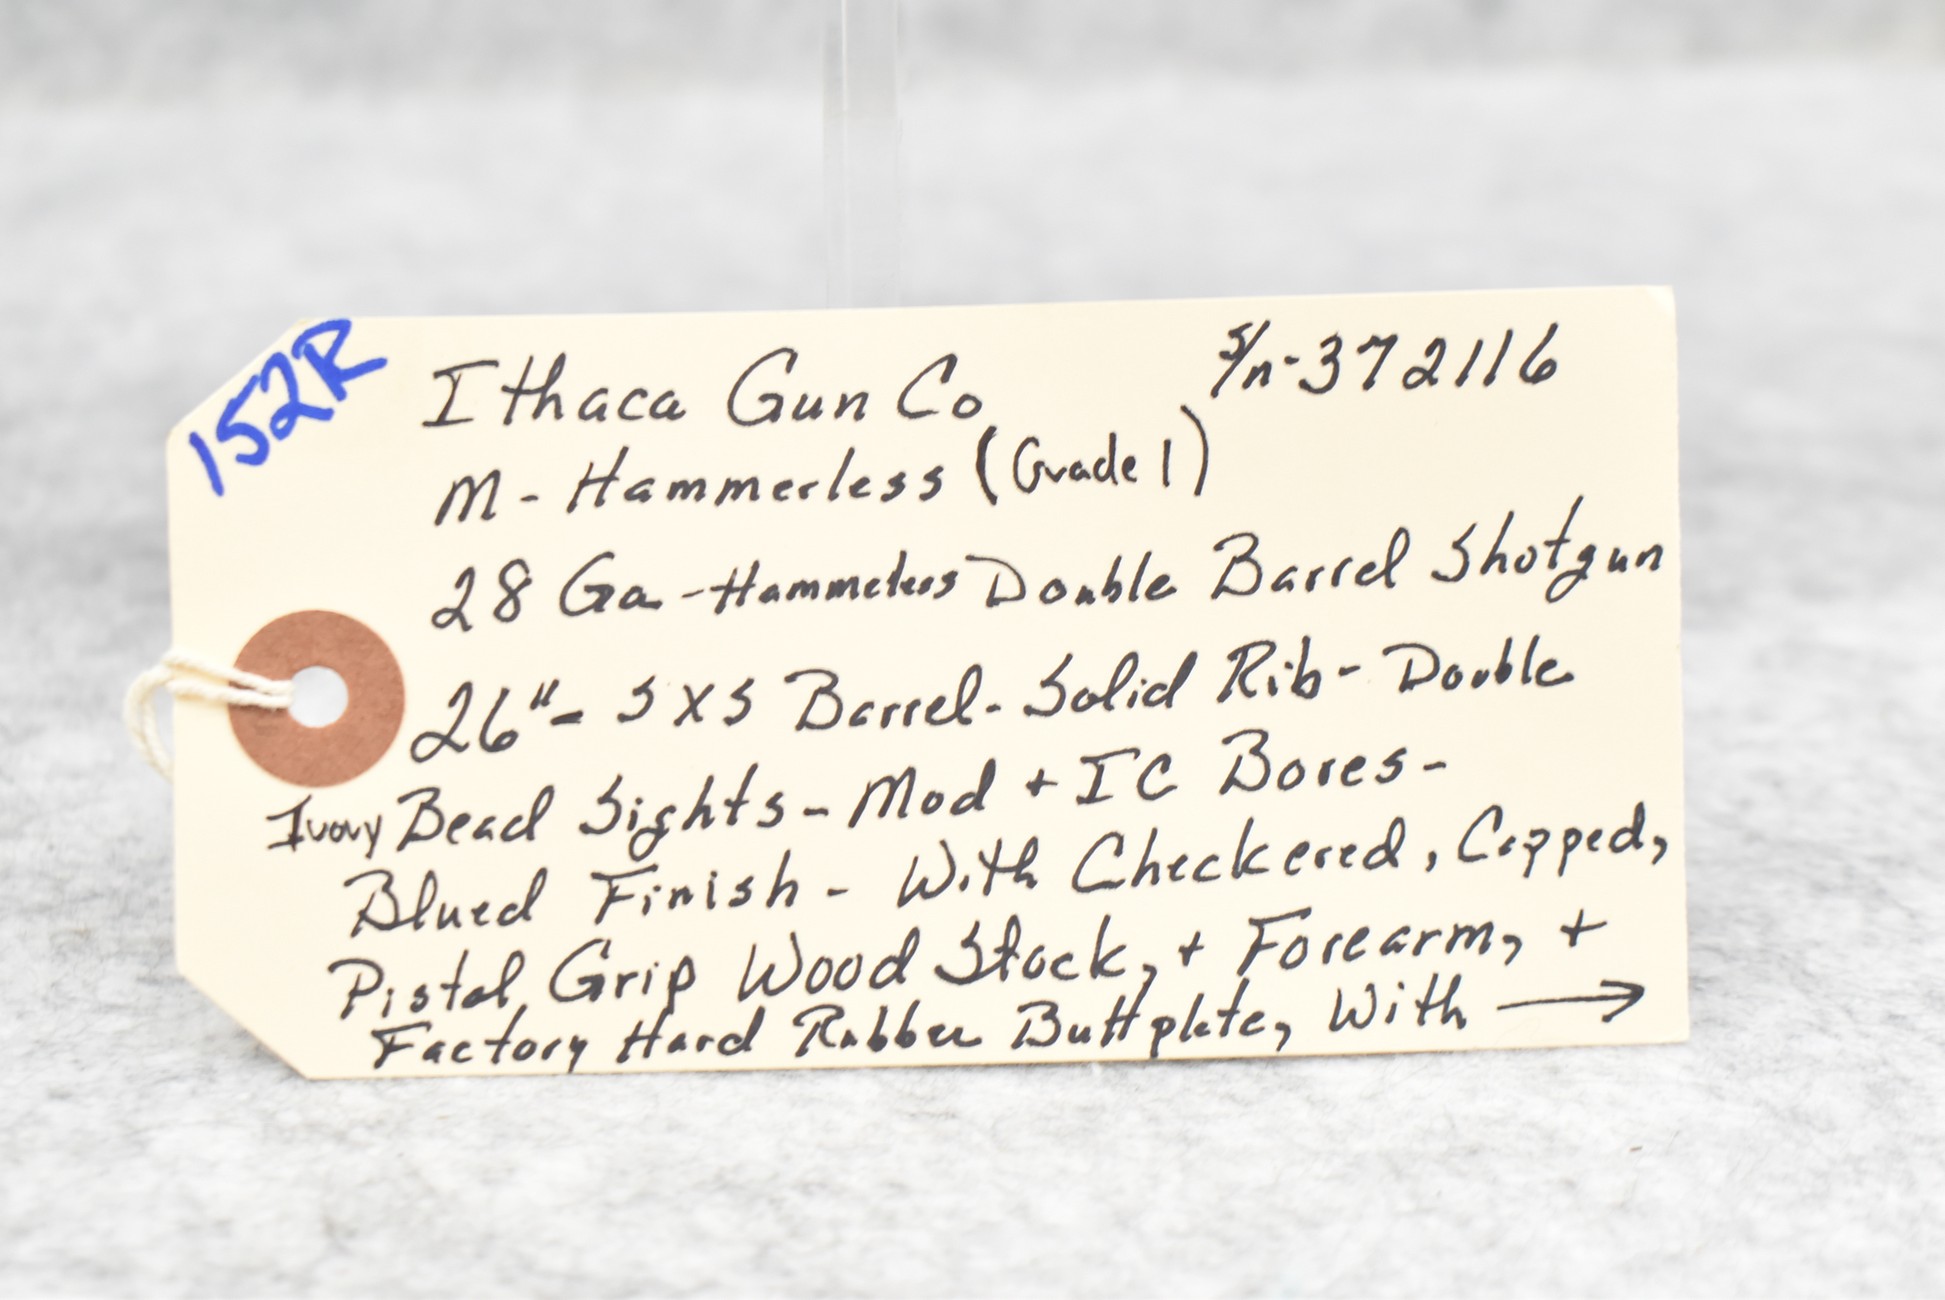 152R
Ithaca Gun Co s/n-372116
M-Hammerless (Grade 1)
28 Ga-Hammerless Double Barrel Shotgun
26"- SXS Barrel-Solid Rib-Double
Ivory Bead Sights-Mod + IC Bores-
Blued Finish- With Checkered, Capped,
Pistol Grip Wood Stock, + Forearm, +
Factory Hard Rubber Buttplate, With →